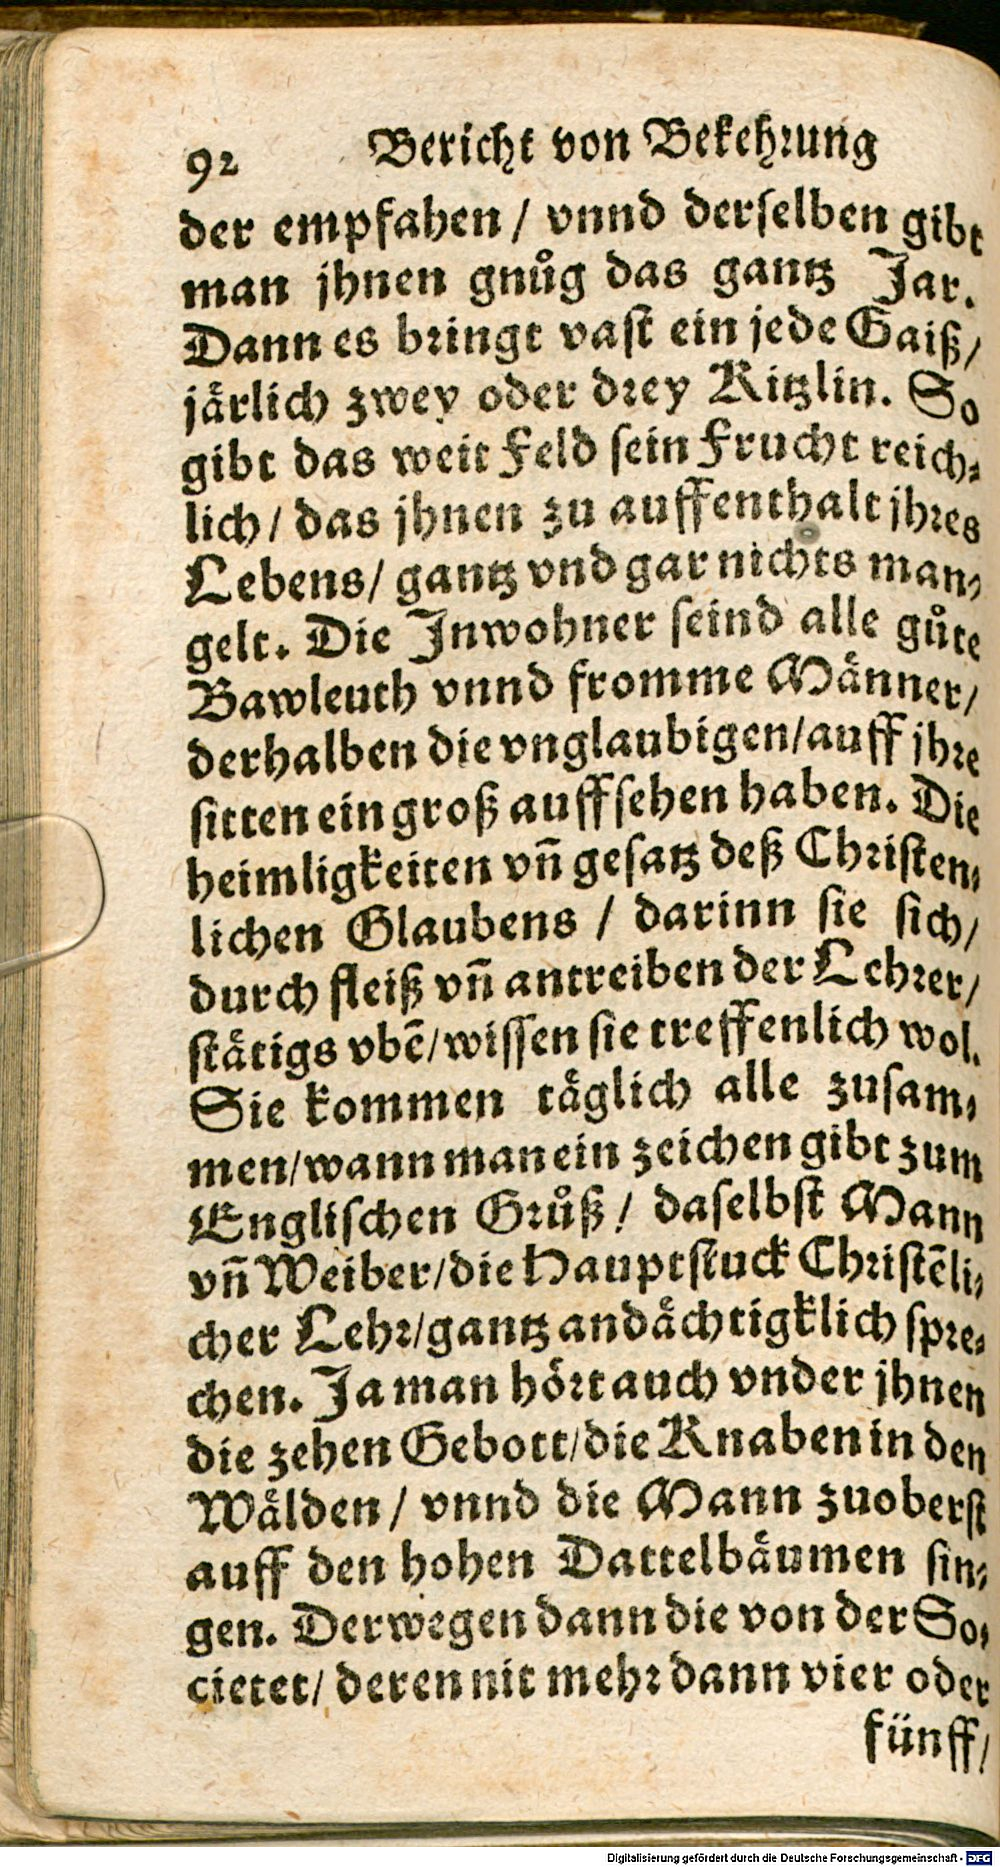 92 Bericht von Bekehrung
der empfahen / vnnd derselben gibt
man jhnen gnůg das gantz Jar.
Dann es bringt vast ein jede Gaiß /
jaͤrlich zwey oder drey Kitzlin. So
gibt das weit Feld sein Frucht reich⸗
lich / das jhnen zu auffenthalt jhres
Lebens / gantz vnd gar nichts man⸗
gelt. Die Inwohner seind alle gůte
Bawleuth vnnd fromme Maͤnner /
derhalben die vnglaubigen / auff jhre
sitten ein groß auffsehen haben. Die
heimligkeiten vñ gesatz deß Christen⸗
lichen Glaubens / darinn sie sich /
durch fleiß vñ antreiben der Lehrer /
staͤtigs vbẽ / wissen sie treffenlich wol.
Sie kommen taͤglich alle zusam⸗
men / wann man ein zeichen gibt zum
Englischen Grůß / daselbst Mann
vñ Weiber / die Hauptstuck Christẽli⸗
cher Lehr / gantz andaͤchtigklich spre⸗
chen. Ja man hoͤrt auch vnder jhnen
die zehen Gebott / die Knaben in den
Waͤlden / vnnd die Mann zuoberst
auff den hohen Dattelbaͤumen sin⸗
gen. Derwegen dann die von der So⸗
cietet / deren nit mehr dann vier oder
fünff /
Digitalisierung gefördert durch die Deutsche Forschungsgemeinschaft - DFG